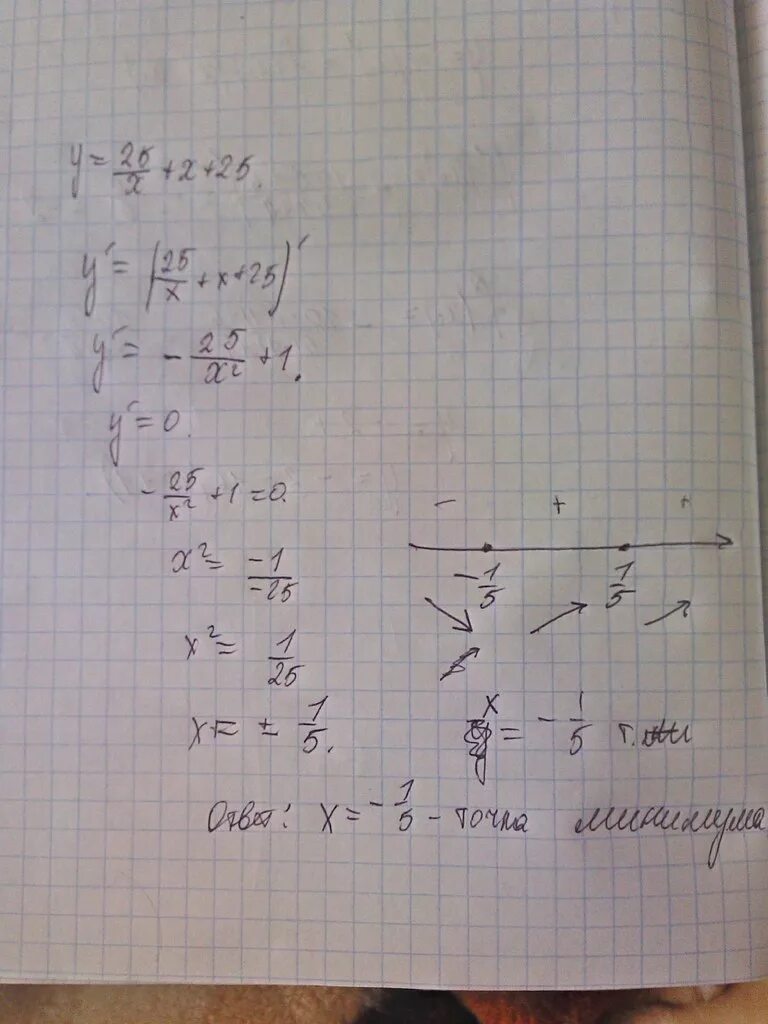 y = 25/x + x + 25.
y' = (25/x + x + 25)'
y' = - 25/x² + 1.
y' = 0.
- 25/x² + 1 = 0.
x² = -1/-25
x² = 1/25
x = ± 1/5.
- + +
- 1/5 1/5
x = - 1/5 т.
Ответ: x = - 1/5 - точка минимума